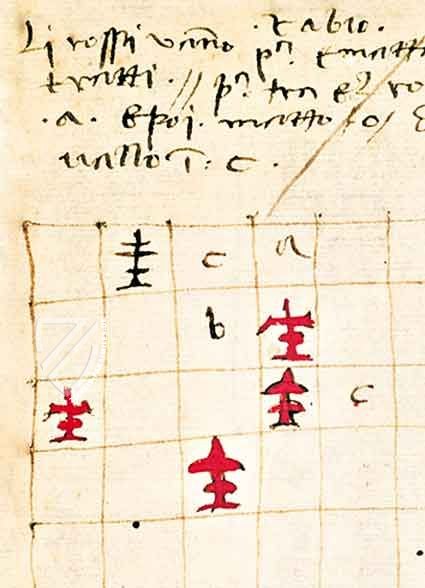 Li rossi vāno pº. e matto
tratti. // pº. tra el ro
.a. E poi. matto co/
uallo ī. c.
c a
b
c